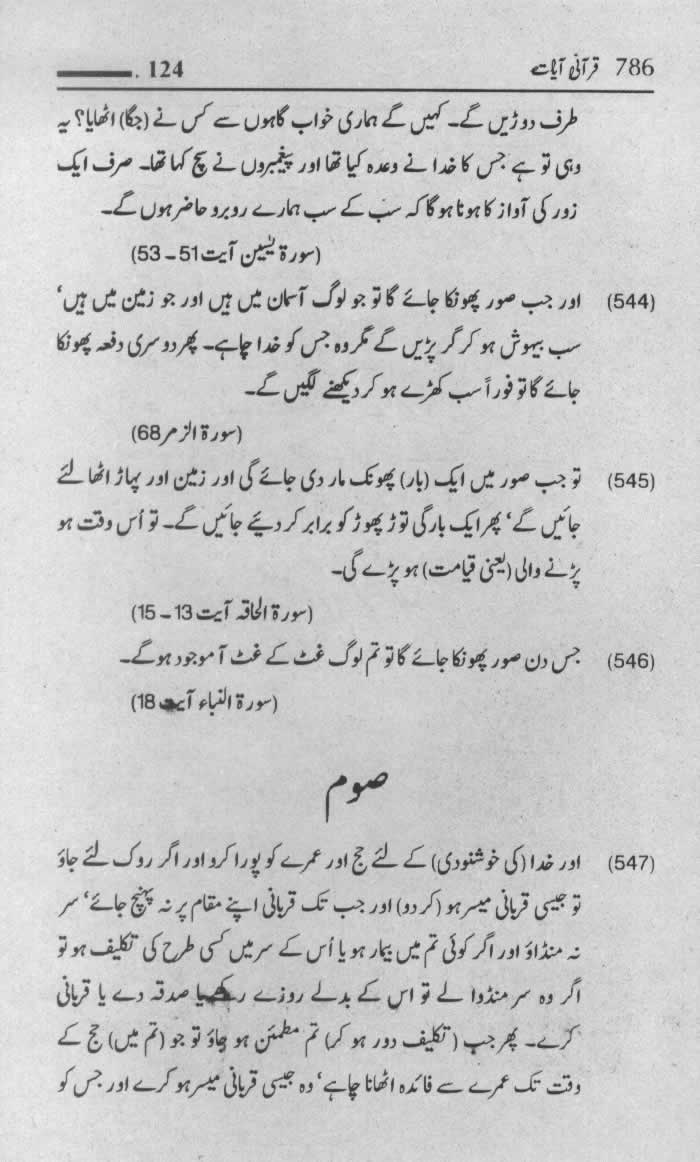 786 قرآنی آیات 124
طرف دوڑیں گے۔ کہیں گے ہماری خواب گاہوں سے کس نے (جگا) اٹھایا؟ یہ
وہی تو ہے جس کا خدا نے وعدہ کیا تھا اور پیغمبروں نے سچ کہا تھا۔ صرف ایک
زور کی آواز کا ہونا ہو گا کہ سب کے سب ہمارے روبرو حاضر ہوں گے۔
(سورۃ یٰسین آیت 51 ۔ 53)
(544) اور جب صور پھونکا جائے گا تو جو لوگ آسمان میں ہیں اور جو زمین میں ہیں‘
سب بیہوش ہو کر گر پڑیں گے مگر وہ جس کو خدا چاہے۔ پھر دوسری دفعہ پھونکا
جائے گا تو فوراً سب کھڑے ہو کر دیکھنے لگیں گے۔
(سورۃ الزمر 68)
(545) تو جب صور میں ایک (بار) پھونک مار دی جائے گی اور زمین اور پہاڑ اٹھا لئے
جائیں گے‘ پھر ایک بارگی توڑ پھوڑ کو برابر کر دیئے جائیں گے۔ تو اُس وقت ہو
پڑنے والی (یعنی قیامت) ہو پڑے گی۔
(سورۃ الحاقہ آیت 13 ۔ 15)
(546) جس دن صور پھونکا جائے گا تو تم لوگ غٹ کے غٹ آ موجود ہو گے۔
(سورۃ النباء آیت 18)
صوم
(547) اور خدا (کی خوشنودی) کے لئے حج اور عمرے کو پورا کرو اور اگر روک لئے جاؤ
تو جیسی قربانی میسر ہو (کر دو) اور جب تک قربانی اپنے مقام پر نہ پہنچ جائے‘ سر
نہ منڈاؤ اور اگر کوئی تم میں بیمار ہو یا اُس کے سر میں کسی طرح کی تکلیف ہو تو
اگر وہ سر منڈوا لے تو اس کے بدلے روزے رکھے یا صدقہ دے یا قربانی
کرے۔ پھر جب (تکلیف دور ہو کر) تم مطمئن ہو جاؤ تو جو (تم میں) حج کے
وقت تک عمرے سے فائدہ اٹھانا چاہے‘ وہ جیسی قربانی میسر ہو کرے اور جس کو